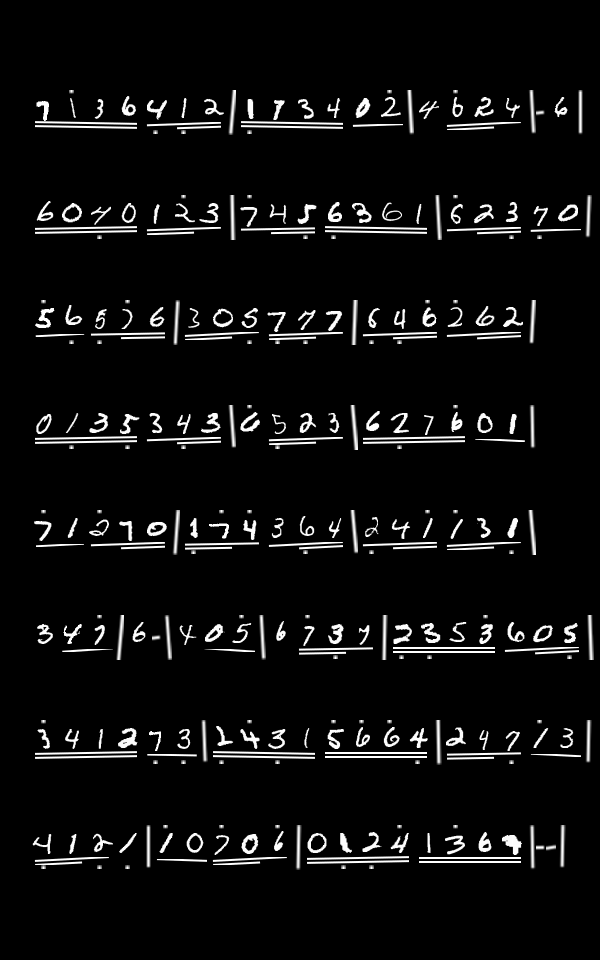 7 1 3 6 4 1 2 | 1 7 3 4 0 2 | 4 6 2 4 | - 6 |
6 0 4 0 1 2 3 | 7 4 5 6 3 6 1 | 6 2 3 7 0 |
5 6 5 7 6 | 3 0 5 7 7 7 | 6 4 6 2 6 2 |
0 1 3 5 3 4 3 | 6 5 2 3 | 6 2 7 6 0 1 |
7 1 2 7 0 | 1 7 4 3 6 4 | 2 4 1 1 3 1 |
3 4 7 | 6 - | 4 0 5 | 6 7 3 7 | 2 3 5 3 6 0 5 |
3 4 1 2 7 3 | 2 4 3 1 5 6 6 4 | 2 4 7 1 3 |
4 1 2 1 | 1 0 7 0 6 | 0 1 2 4 1 3 6 9 | - - |